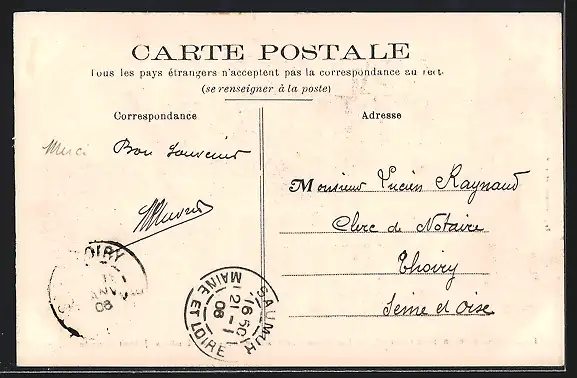 CARTE POSTALE
Tous les pays étrangers n'acceptent pas la correspondance au recto
(se renseigner à la poste)
Correspondance
Adresse
Merci Bon souvenir
Monsieur Lucien Raynaud
Clerc de Notaire
Thoiry
Seine et Oise
OIRY
JANV
08
SAUMUR
16 50
21 - 1
08
MAINE ET LOIRE